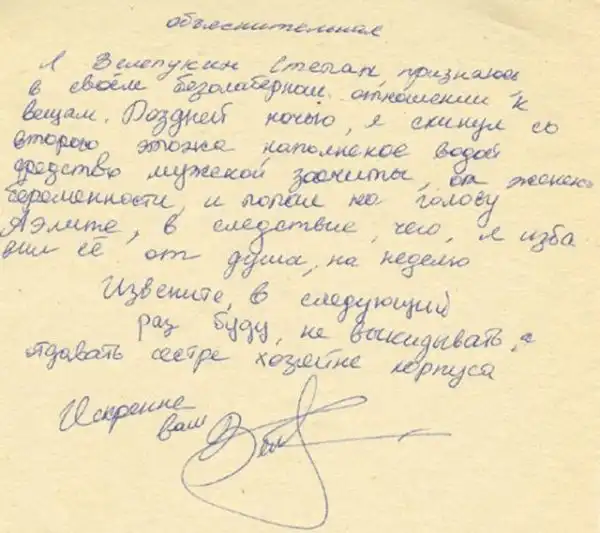 объяснительная
Я Велепукин Степан, признаюсь
в своём безалаберном отношении к
вещам. Поздней ночью, я скинул со
второго этажа наполненое водой
средство мужской защиты, от женской
беременности, и попал на голову
Аэлите, в следствие, чего, я изба
вил её от душа, на неделю
Извените, в следующий
раз буду, не выкидывать, а
отдавать сестре хозяйке корпуса
Искренне
ваш Вел